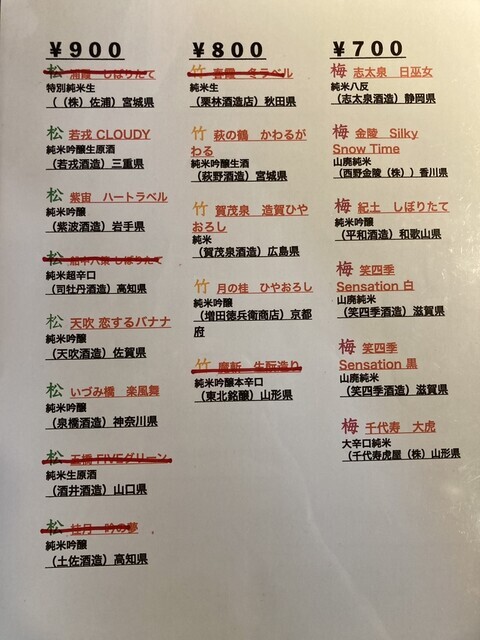 ¥900
松 浦霞 しぼりたて
特別純米生
((株) 佐浦) 宮城県
松 若戎 CLOUDY
純米吟醸生原酒
(若戎酒造) 三重県
松 紫宙 ハートラベル
純米吟醸
(紫波酒造) 岩手県
松 船中八策 しぼりたて
純米超辛口
(司牡丹酒造) 高知県
松 天吹 恋するバナナ
純米吟醸
(天吹酒造) 佐賀県
松 いづみ橋 楽風舞
純米吟醸
(泉橋酒造) 神奈川県
松 五橋 FIVEグリーン
純米生原酒
(酒井酒造) 山口県
松 桂月 吟の夢
純米吟醸
(土佐酒造) 高知県
¥800
竹 春霞 冬ラベル
純米生
(栗林酒造店) 秋田県
竹 萩の鶴 かわるが
わる
純米吟醸生酒
(萩野酒造) 宮城県
竹 賀茂泉 造賀ひや
おろし
純米
(賀茂泉酒造) 広島県
竹 月の桂 ひやおろし
純米吟醸
(増田徳兵衛商店) 京都
府
竹 魔斬 生酛造り
純米吟醸本辛口
(東北銘醸) 山形県
¥700
梅 志太泉 日巫女
純米八反
(志太泉酒造) 静岡県
梅 金陵 Silky
Snow Time
山廃純米
(西野金陵 (株)) 香川県
梅 紀土 しぼりたて
純米吟醸
(平和酒造) 和歌山県
梅 笑四季
Sensation 白
山廃純米
(笑四季酒造) 滋賀県
梅 笑四季
Sensation 黒
山廃純米
(笑四季酒造) 滋賀県
梅 千代寿 大虎
大辛口純米
(千代寿虎屋 (株) 山形県